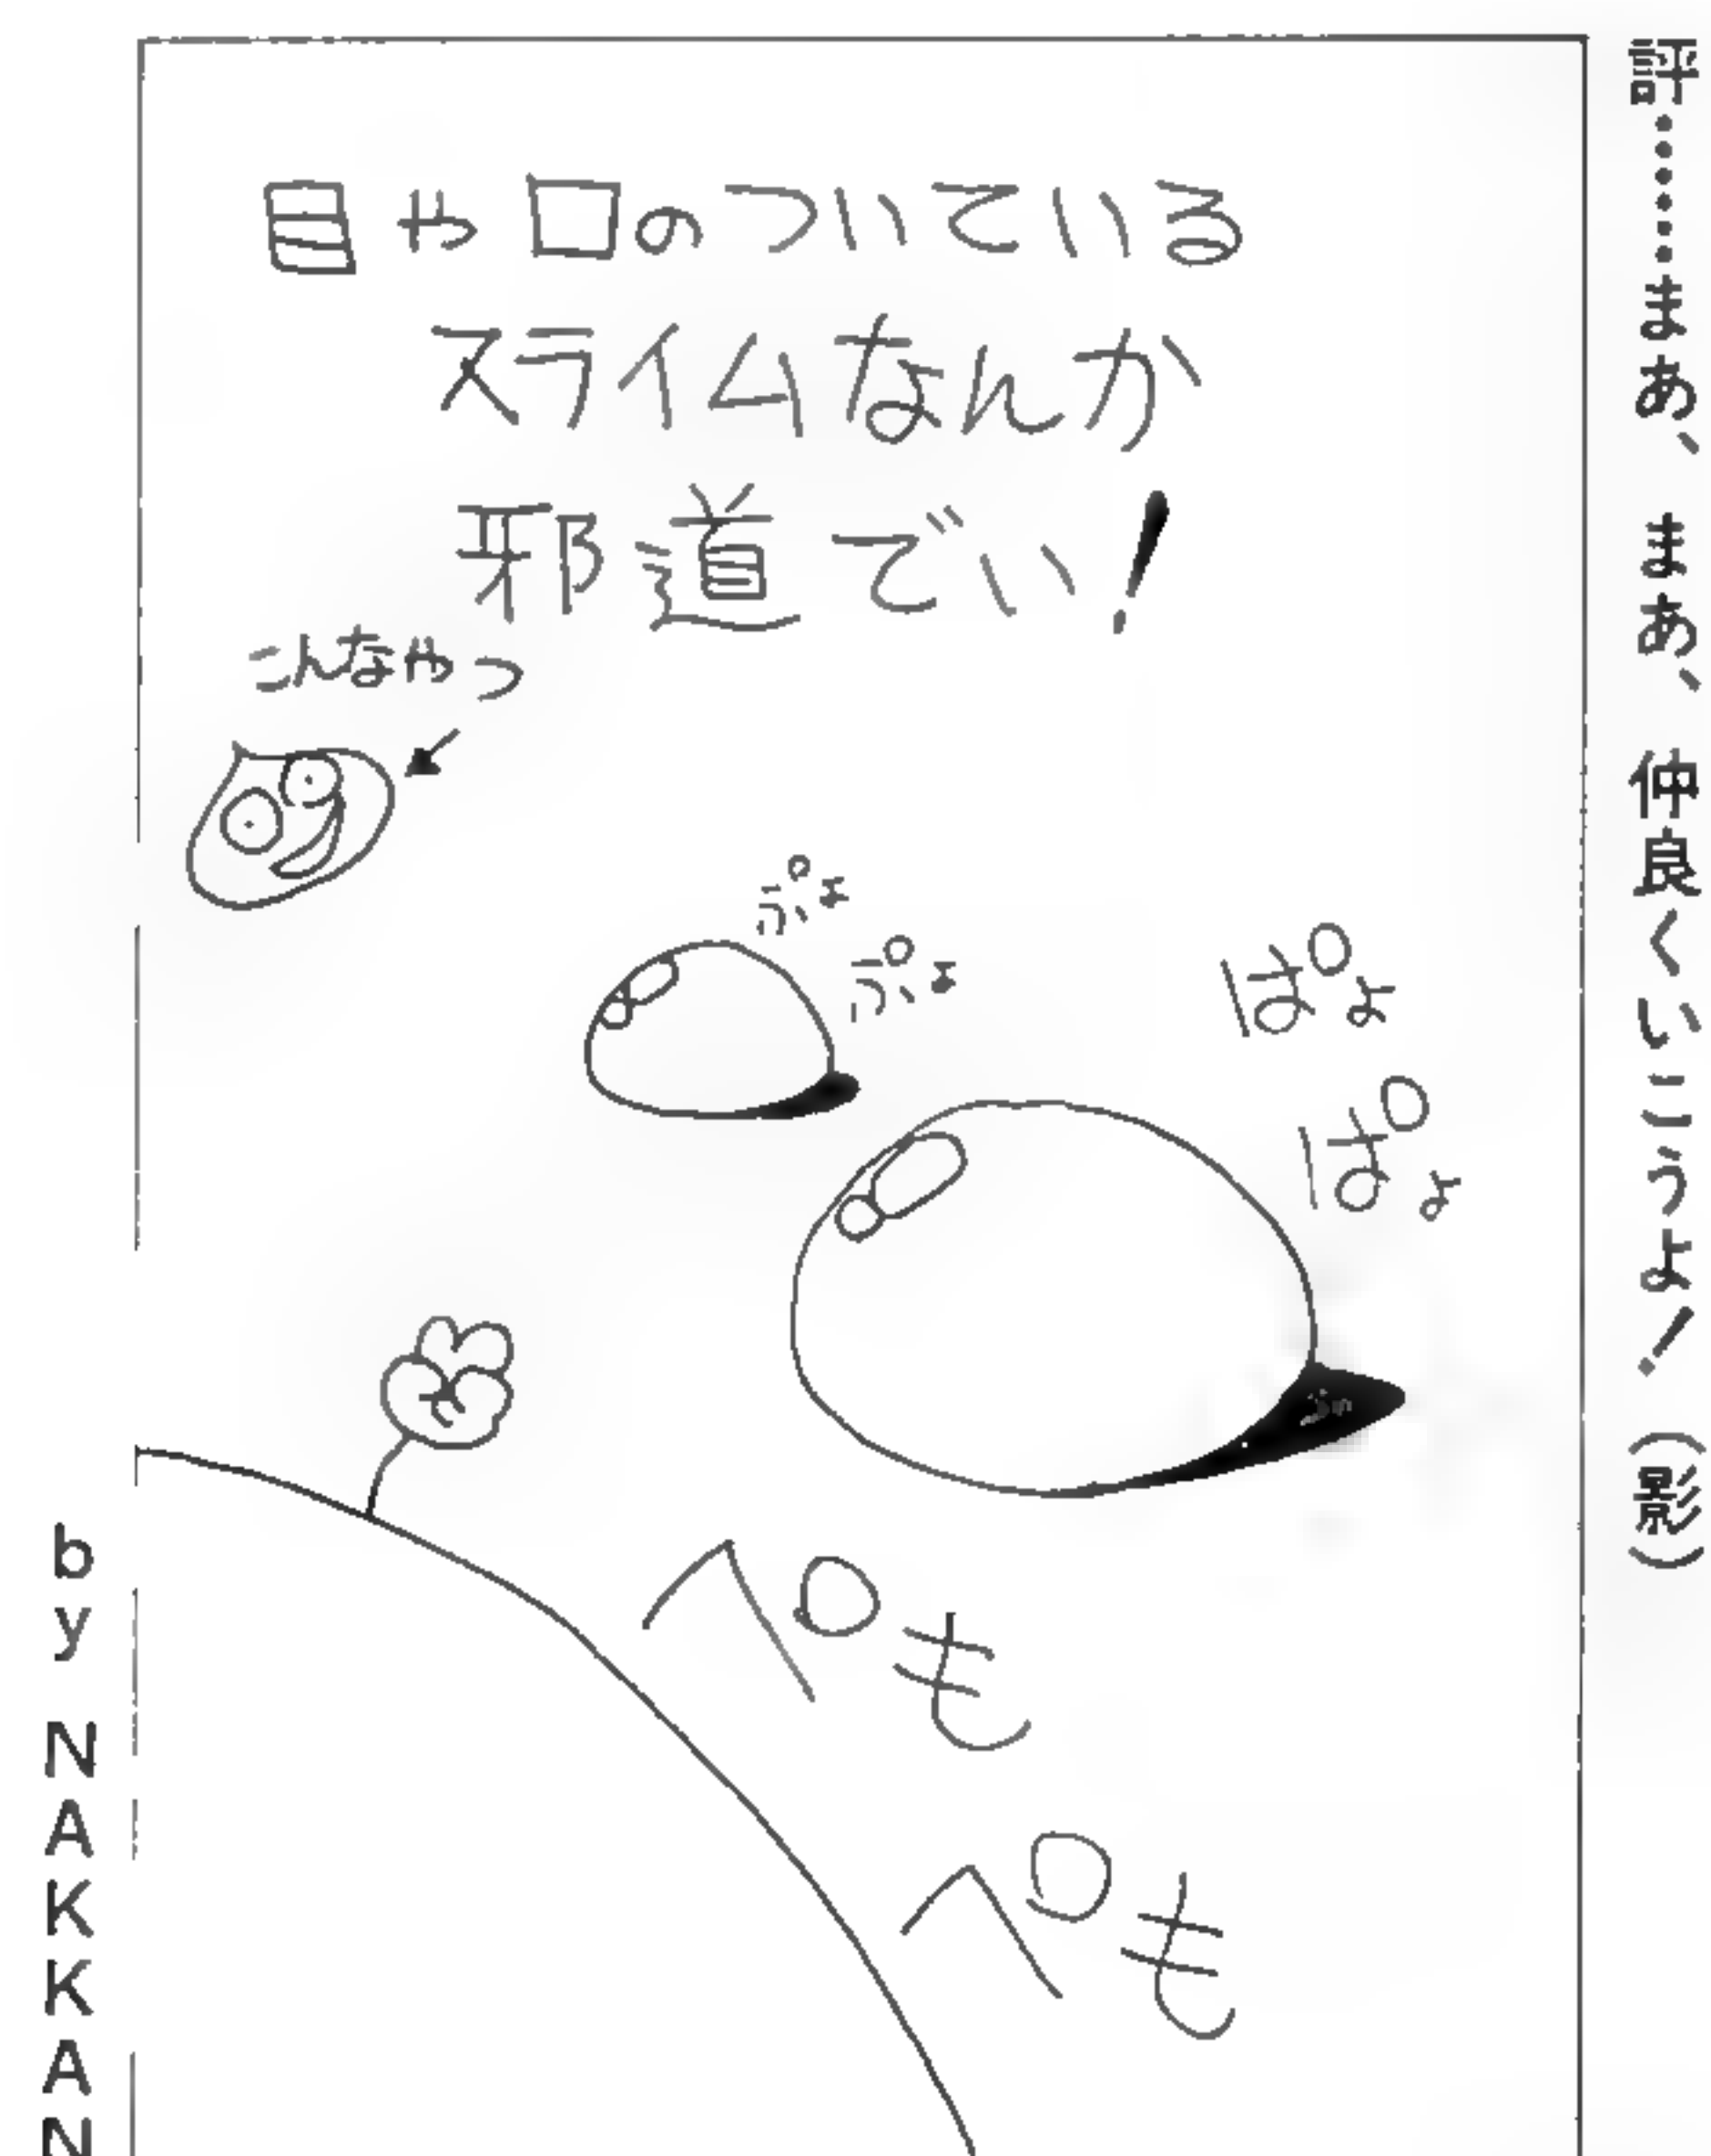 評……まあ、まあ、仲良くいこうよ！（影）
目や口のついている
スライムなんか
邪道でい！
こんなやつ
ぷよ
ぷよ
ぽよ
ぽよ
ぺも
ぺも
by NAKKAN